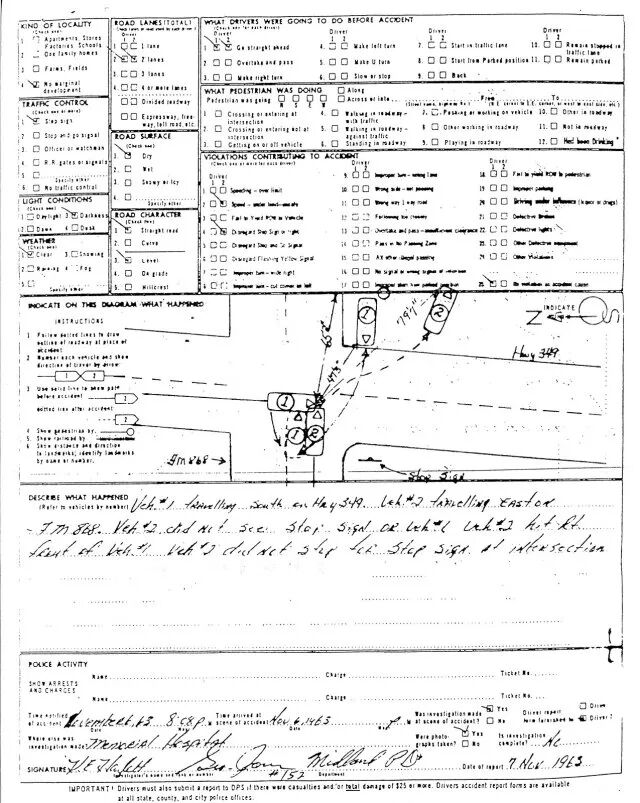 KIND OF LOCALITY
(Check one)
Apartments, Stores
Factories, Schools
One family homes
Farms, Fields
No marginal development
TRAFFIC CONTROL
1. Stop sign
2. Stop and go signal
3. Officer or watchman
4. R.R. gates or signals
Specify other
6. No traffic control
LIGHT CONDITIONS
(Check one)
1 Daylight 3 Darkness
2 Dawn 4 Dusk
WEATHER
(Check one)
1 Clear 3 Snowing
2 Raining 4 Fog
Specify other
ROAD LANES (TOTAL)
Driver
1 2
1 lane
2 lanes
3 lanes
4 or more lanes
Divided roadway
Expressway, freeway, toll road, etc.
ROAD SURFACE
(Check one)
Dry
Wet
Snowy or Icy
Specify other
ROAD CHARACTER
(Check two)
Straight road
Curve
Level
On grade
Hillcrest
WHAT DRIVERS WERE GOING TO DO BEFORE ACCIDENT
Driver
1. Go straight ahead
2. Overtake and pass
3. Make right turn
4. Make left turn
5. Make U turn
6. Slow or stop
7. Start in traffic lane
8. Start from Parked position
9. Back
10. Remain stopped in traffic lane
11. Remain parked
WHAT PEDESTRIAN WAS DOING
Along
Pedestrian was going N S E W Across or into
1. Crossing or entering at intersection
2. Crossing or entering not at intersection
3. Getting on or off vehicle
4. Walking in roadway - with traffic
5. Walking in roadway - against traffic
6. Standing in roadway
7. Pushing or working on vehicle
8. Other working in roadway
9. Playing in roadway
10. Other in roadway
11. Not in roadway
12. Had been Drinking
VIOLATIONS CONTRIBUTING TO ACCIDENT
Driver
1. Speeding - over limit
2. Speed - under limit - unsafe
3. Fail to Yield ROW to Vehicle
4. Disregard Stop Sign or light
5. Disregard Stop and Go Signal
6. Disregard Flashing Yellow Signal
7. Improper turn - wide right
8. Improper turn - cut corner on left
9. Improper turn - wrong lane
10. Wrong side - not passing
11. Wrong way 1 way road
12. Following too closely
14. Pass in No Passing Zone
15. All other illegal passing
18. Fail to yield ROW to pedestrian
19. Improper parking
20. Driving under influence
21. Defective Brakes
22. Defective lights
23. Other Defective equipment
24. Other Violations
25. No violation as accident cause
INDICATE ON THIS DIAGRAM WHAT HAPPENED
INSTRUCTIONS
1 Follow dotted lines to draw
outline of roadway at place of
accident
2 Number each vehicle and show
direction of travel by arrow:
3 Use solid line to show path
before accident
dotted line after accident
4 Show pedestrian by:
5 Show railroad by
6 Show distance and direction
to landmarks; identify landmarks
by name or number.
INDICATE
Hwy 349
FM 868
Stop Sign
DESCRIBE WHAT HAPPENED
(Refer to vehicles by number) Veh #1 travelling South on Hwy 349. Veh #2 travelling East on
FM 868. Veh #2 did not see Stop Sign OR Veh #1 Veh #2 hit Rt
front of Veh #1 Veh #2 did not stop for Stop Sign at intersection
POLICE ACTIVITY
SHOW ARRESTS
AND CHARGES
Name Charge Ticket No.
Name Charge Ticket No.
Time notified of accident November 6, 63 8:08 P. M Time arrived at scene of accident Nov 6, 1963
Was investigation made at scene of accident? Yes No
Driver report form furnished to
Where else was investigation made? Memorial Hospital
Were photographs taken? Yes No
Is investigation complete?
SIGNATURE #152 Midland PD
Investigator's name and rank or number Department
Date of report 7 Nov. 1963
IMPORTANT! Drivers must also submit a report to DPS if there were casualties and/or total damage of $25 or more. Drivers accident report forms are available
at all state, county, and city police offices.